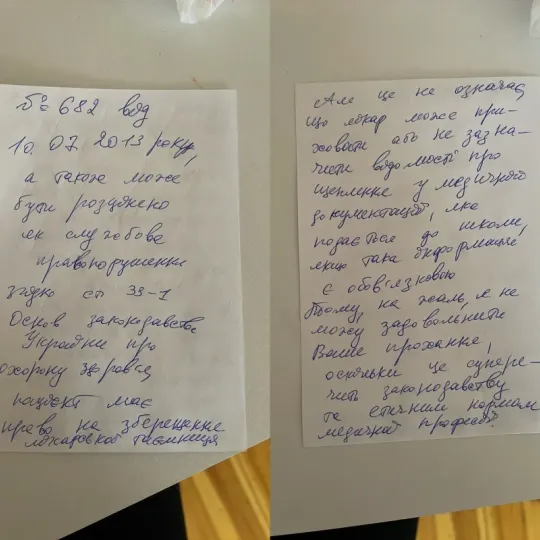 № 682 від
10.07.2013 року,
а також може
бути розцінено
як службове
правопорушення
згідно ст 39-1
Основ законодавства
України про
охорону здоров'я,
пацієнт має
право на збереження
лікарської таємниця
Але це не означає,
що лікар може при-
ховати або не зазна-
чити відомості про
щеплення у медичної
документації, яка
подається до школи,
якщо така інформація
є обов'язковою
Тому, на жаль, я не
можу задовольнити
Ваше прохання,
оскільки це супере-
чить законодавству
та етичним нормам
медичної професії.